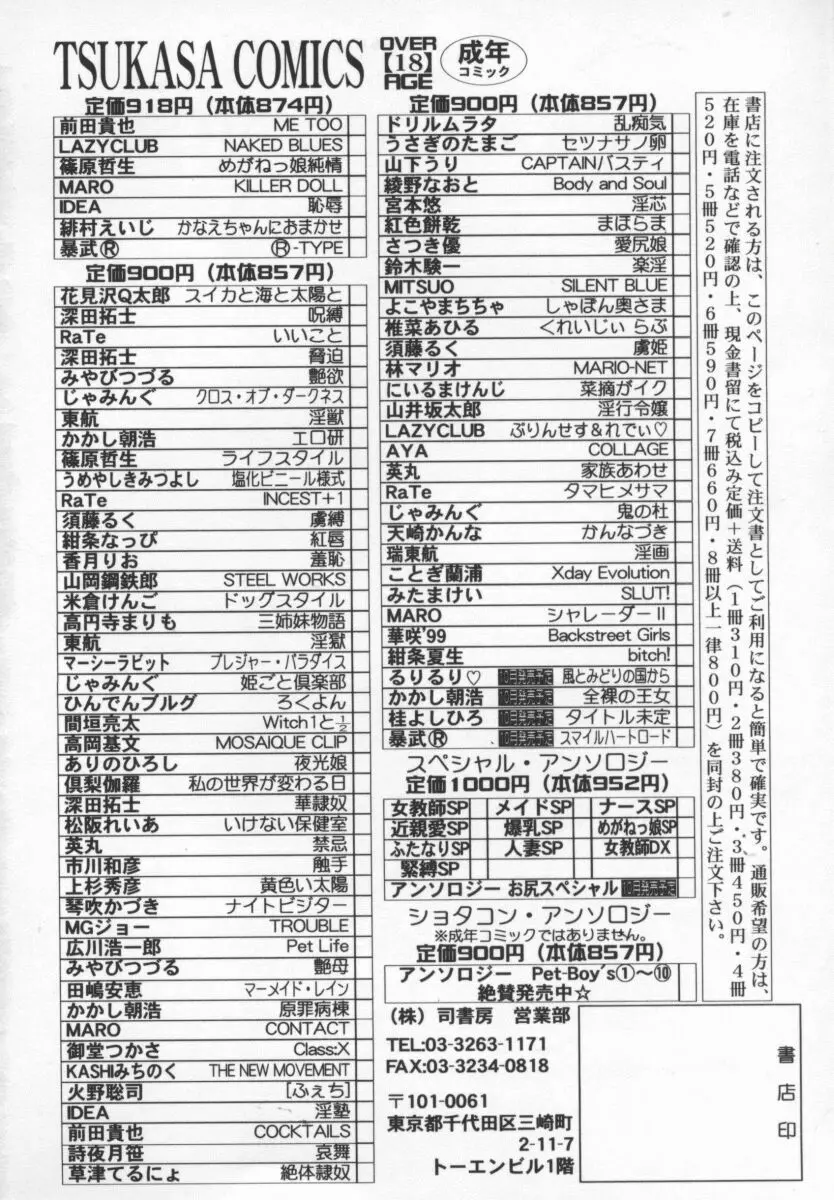 TSUKASA COMICS
OVER
【18】
AGE
成年
コミック
定価918円（本体874円）
前田貴也 ME TOO
LAZYCLUB NAKED BLUES
篠原哲生 めがねっ娘純情
MARO KILLER DOLL
IDEA 恥辱
緋村えいじ かなえちゃんにおまかせ
暴武Ⓡ Ⓡ-TYPE
定価900円（本体857円）
花見沢Q太郎 スイカと海と太陽と
深田拓士 呪縛
RaTe いいこと
深田拓士 脅迫
みやびつづる 艶欲
じゃみんぐ クロス・オブ・ダークネス
東航 淫獣
かかし朝浩 エロ研
篠原哲生 ライフスタイル
うめやしきみつよし 塩化ビニール様式
RaTe INCEST+1
須藤るく 虜縛
紺条なっぴ 紅唇
香月りお 羞恥
山岡鋼鉄郎 STEEL WORKS
米倉けんご ドッグスタイル
高円寺まりも 三姉妹物語
東航 淫獄
マーシーラビット プレジャー・パラダイス
じゃみんぐ 姫ごと倶楽部
ひんでんブルグ ろくよん
間垣亮太 Witch1と½
高岡基文 MOSAIQUE CLIP
ありのひろし 夜光娘
倶梨伽羅 私の世界が変わる日
深田拓士 華隷奴
松阪れいあ いけない保健室
英丸 禁忌
市川和彦 触手
上杉秀彦 黄色い太陽
琴吹かづき ナイトビジター
MGジョー TROUBLE
広川浩一郎 Pet Life
みやびつづる 艶母
田嶋安恵 マーメイド・レイン
かかし朝浩 原罪病棟
MARO CONTACT
御堂つかさ Class:X
KASHIみちのく THE NEW MOVEMENT
火野聡司 [ふぇち]
IDEA 淫塾
前田貴也 COCKTAILS
詩夜月笹 哀舞
草津てるにょ 絶体隷奴
定価900円（本体857円）
ドリルムラタ 乱痴気
うさぎのたまご セツナサノ卵
山下うり CAPTAINバスティ
綾野なおと Body and Soul
宮本悠 淫芯
紅色餅乾 まほらま
さつき優 愛尻娘
鈴木験一 楽淫
MITSUO SILENT BLUE
よこやまちちゃ しゃぼん奥さま
椎菜あひる くれいじぃ らぶ
須藤るく 虜姫
林マリオ MARIO-NET
にいるまけんじ 菜摘がイク
山井坂太郎 淫行令嬢
LAZYCLUB ぷりんせす&れでぃ♡
AYA COLLAGE
英丸 家族あわせ
RaTe タマヒメサマ
じゃみんぐ 鬼の杜
天崎かんな かんなづき
瑞東航 淫画
ことぎ蘭浦 Xday Evolution
みたまけい SLUT!
MARO シャレーダーⅡ
華咲'99 Backstreet Girls
紺条夏生 bitch!
るりるり♡ 10月発売予定 風とみどりの国から
かかし朝浩 10月発売予定 全裸の王女
桂よしひろ 10月発売予定 タイトル未定
暴武Ⓡ 10月発売予定 スマイルハートロード
スペシャル・アンソロジー
定価1000円（本体952円）
女教師SP メイドSP ナースSP
近親愛SP 爆乳SP めがねっ娘SP
ふたなりSP 人妻SP 女教師DX
緊縛SP
アンソロジー お尻スペシャル 10月発売予定
ショタコン・アンソロジー
※成年コミックではありません。
定価900円（本体857円）
アンソロジー Pet-Boy's①〜⑩
絶賛発売中☆
（株）司書房 営業部
TEL:03-3263-1171
FAX:03-3234-0818
〒101-0061
東京都千代田区三崎町
2-11-7
トーエンビル1階
書店印
書店に注文される方は、このページをコピーして注文書としてご利用になると簡単で確実です。通販希望の方は、
在庫を電話などで確認の上、現金書留にて税込み定価＋送料（1冊310円・2冊380円・3冊450円・4冊
520円・5冊520円・6冊590円・7冊660円・8冊以上一律800円）を同封の上ご注文下さい。